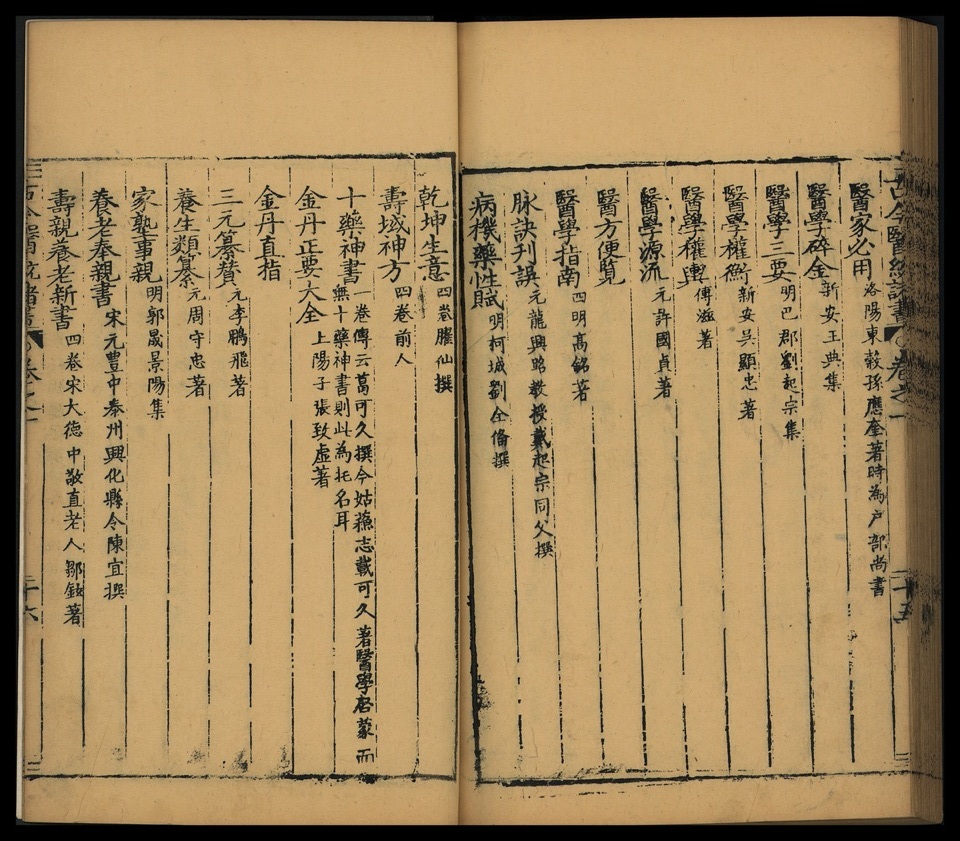 古今醫統諸書 卷之一 二十五
醫家必用 洛陽東穀孫應奎著時為戶部尚書
醫學碎金 新安王典集
醫學三要 明巴郡劉起宗集
醫學權衡 新安吳顯忠著
醫學權輿 傅滋著
醫學源流 元許國貞著
醫方便覽
醫學指南 四明高銘著
脉訣刊誤 元龍興路教授戴起宗同父撰
病機藥性賦 明柯城劉全俻撰
乾坤生意 四卷臞仙撰
壽域神方 四卷前人
十藥神書 一卷傳云葛可久撰今姑蘓志載可久著醫學啓蒙而
無十藥神書則此為托名耳
金丹正要大全 上陽子張致虛著
金丹直指
三元纂贊 元李鵬飛著
養生類纂 元周守忠著
家塾事親 明郭晟景陽集
養老奉親書 宋元豐中泰州興化縣令陳宜撰
壽親養老新書 四卷宋大德中敬直老人鄒鉉著
古今醫統諸書 卷之一 二十六